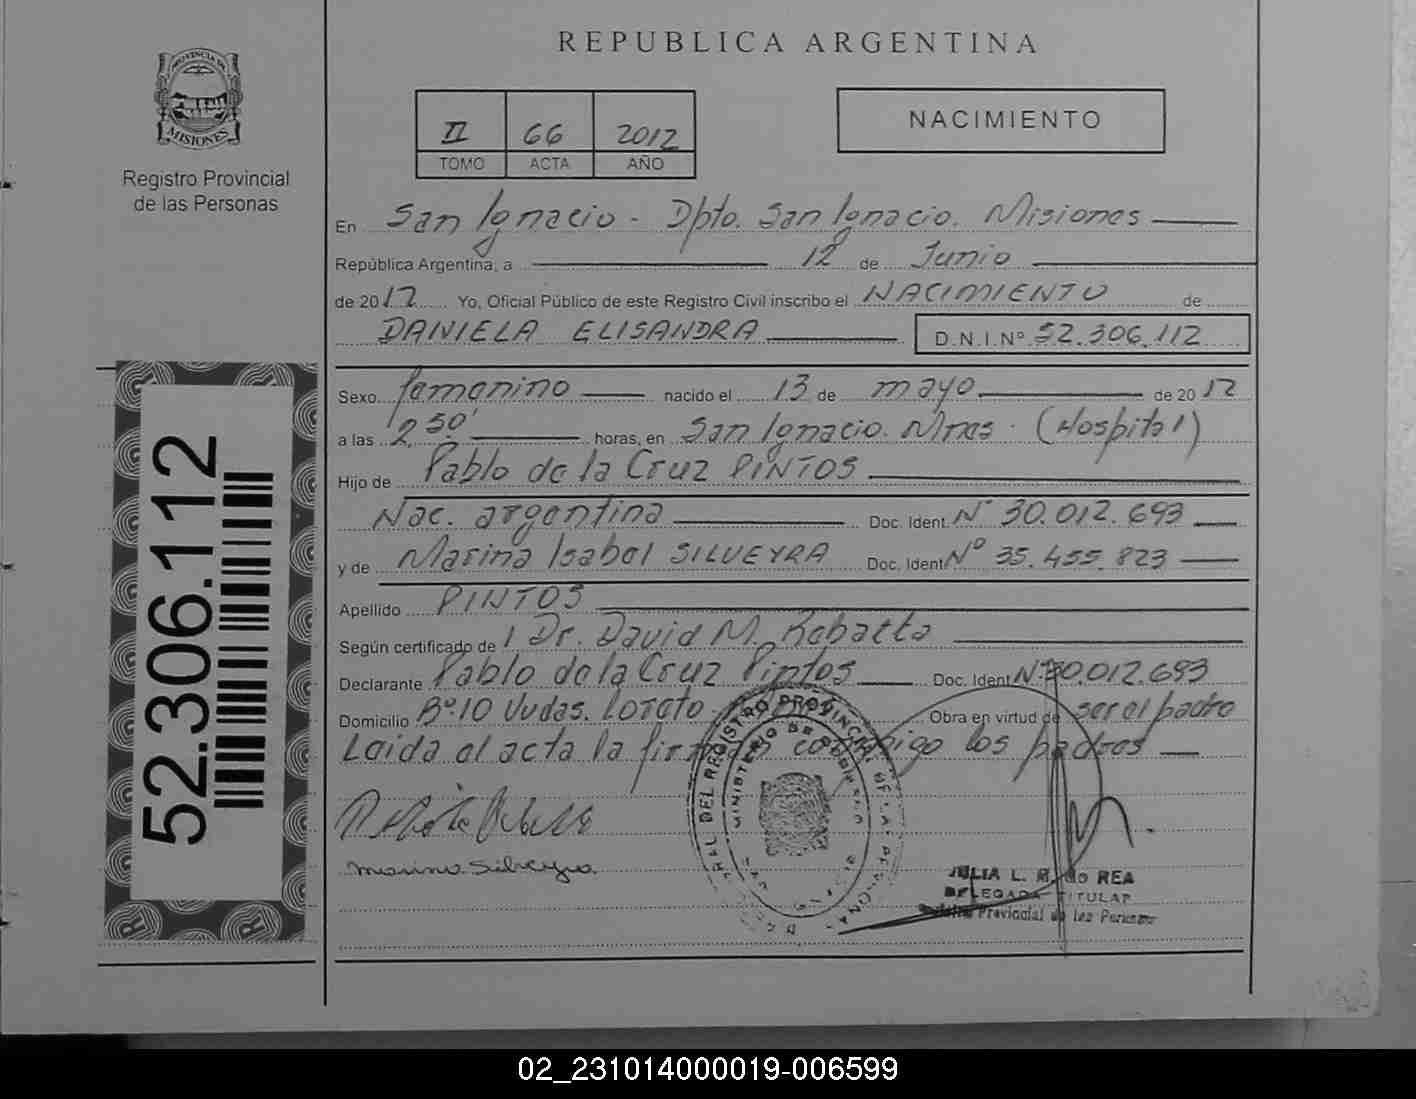 REPUBLICA ARGENTINA
PROVINCIA DE
MISIONES
Registro Provincial
de las Personas
II 66 2012
TOMO ACTA AÑO
NACIMIENTO
En San Ignacio - Dpto. San Ignacio. Misiones
República Argentina, a 12 de Junio
de 2012 Yo, Oficial Público de este Registro Civil inscribo el NACIMIENTO de
DANIELA ELISANDRA D.N.I.Nº 52.306.112
Sexo femenino nacido el 13 de mayo de 2012
a las 2,50' horas, en San Ignacio. Mnes. (Hospital)
Hijo de Pablo de la Cruz PINTOS
Nac. argentina Doc. Ident. Nº 30.012.693
y de Marina Isabel SILVEYRA Doc. Ident. Nº 35.455.823
Apellido PINTOS
Según certificado de l Dr. David M.
Declarante Pablo de la Cruz Pintos Doc. Ident. Nº 30.012.693
Domicilio Bº.10 Vvdas. Loreto Obra en virtud de ser el padre
Leida el acta la firman conmigo los padres
Marina Silveyra
JULIA L. R. de REA
DELEGADA TITULAR
Registro Provincial de las Personas
52.306.112
02_231014000019-006599